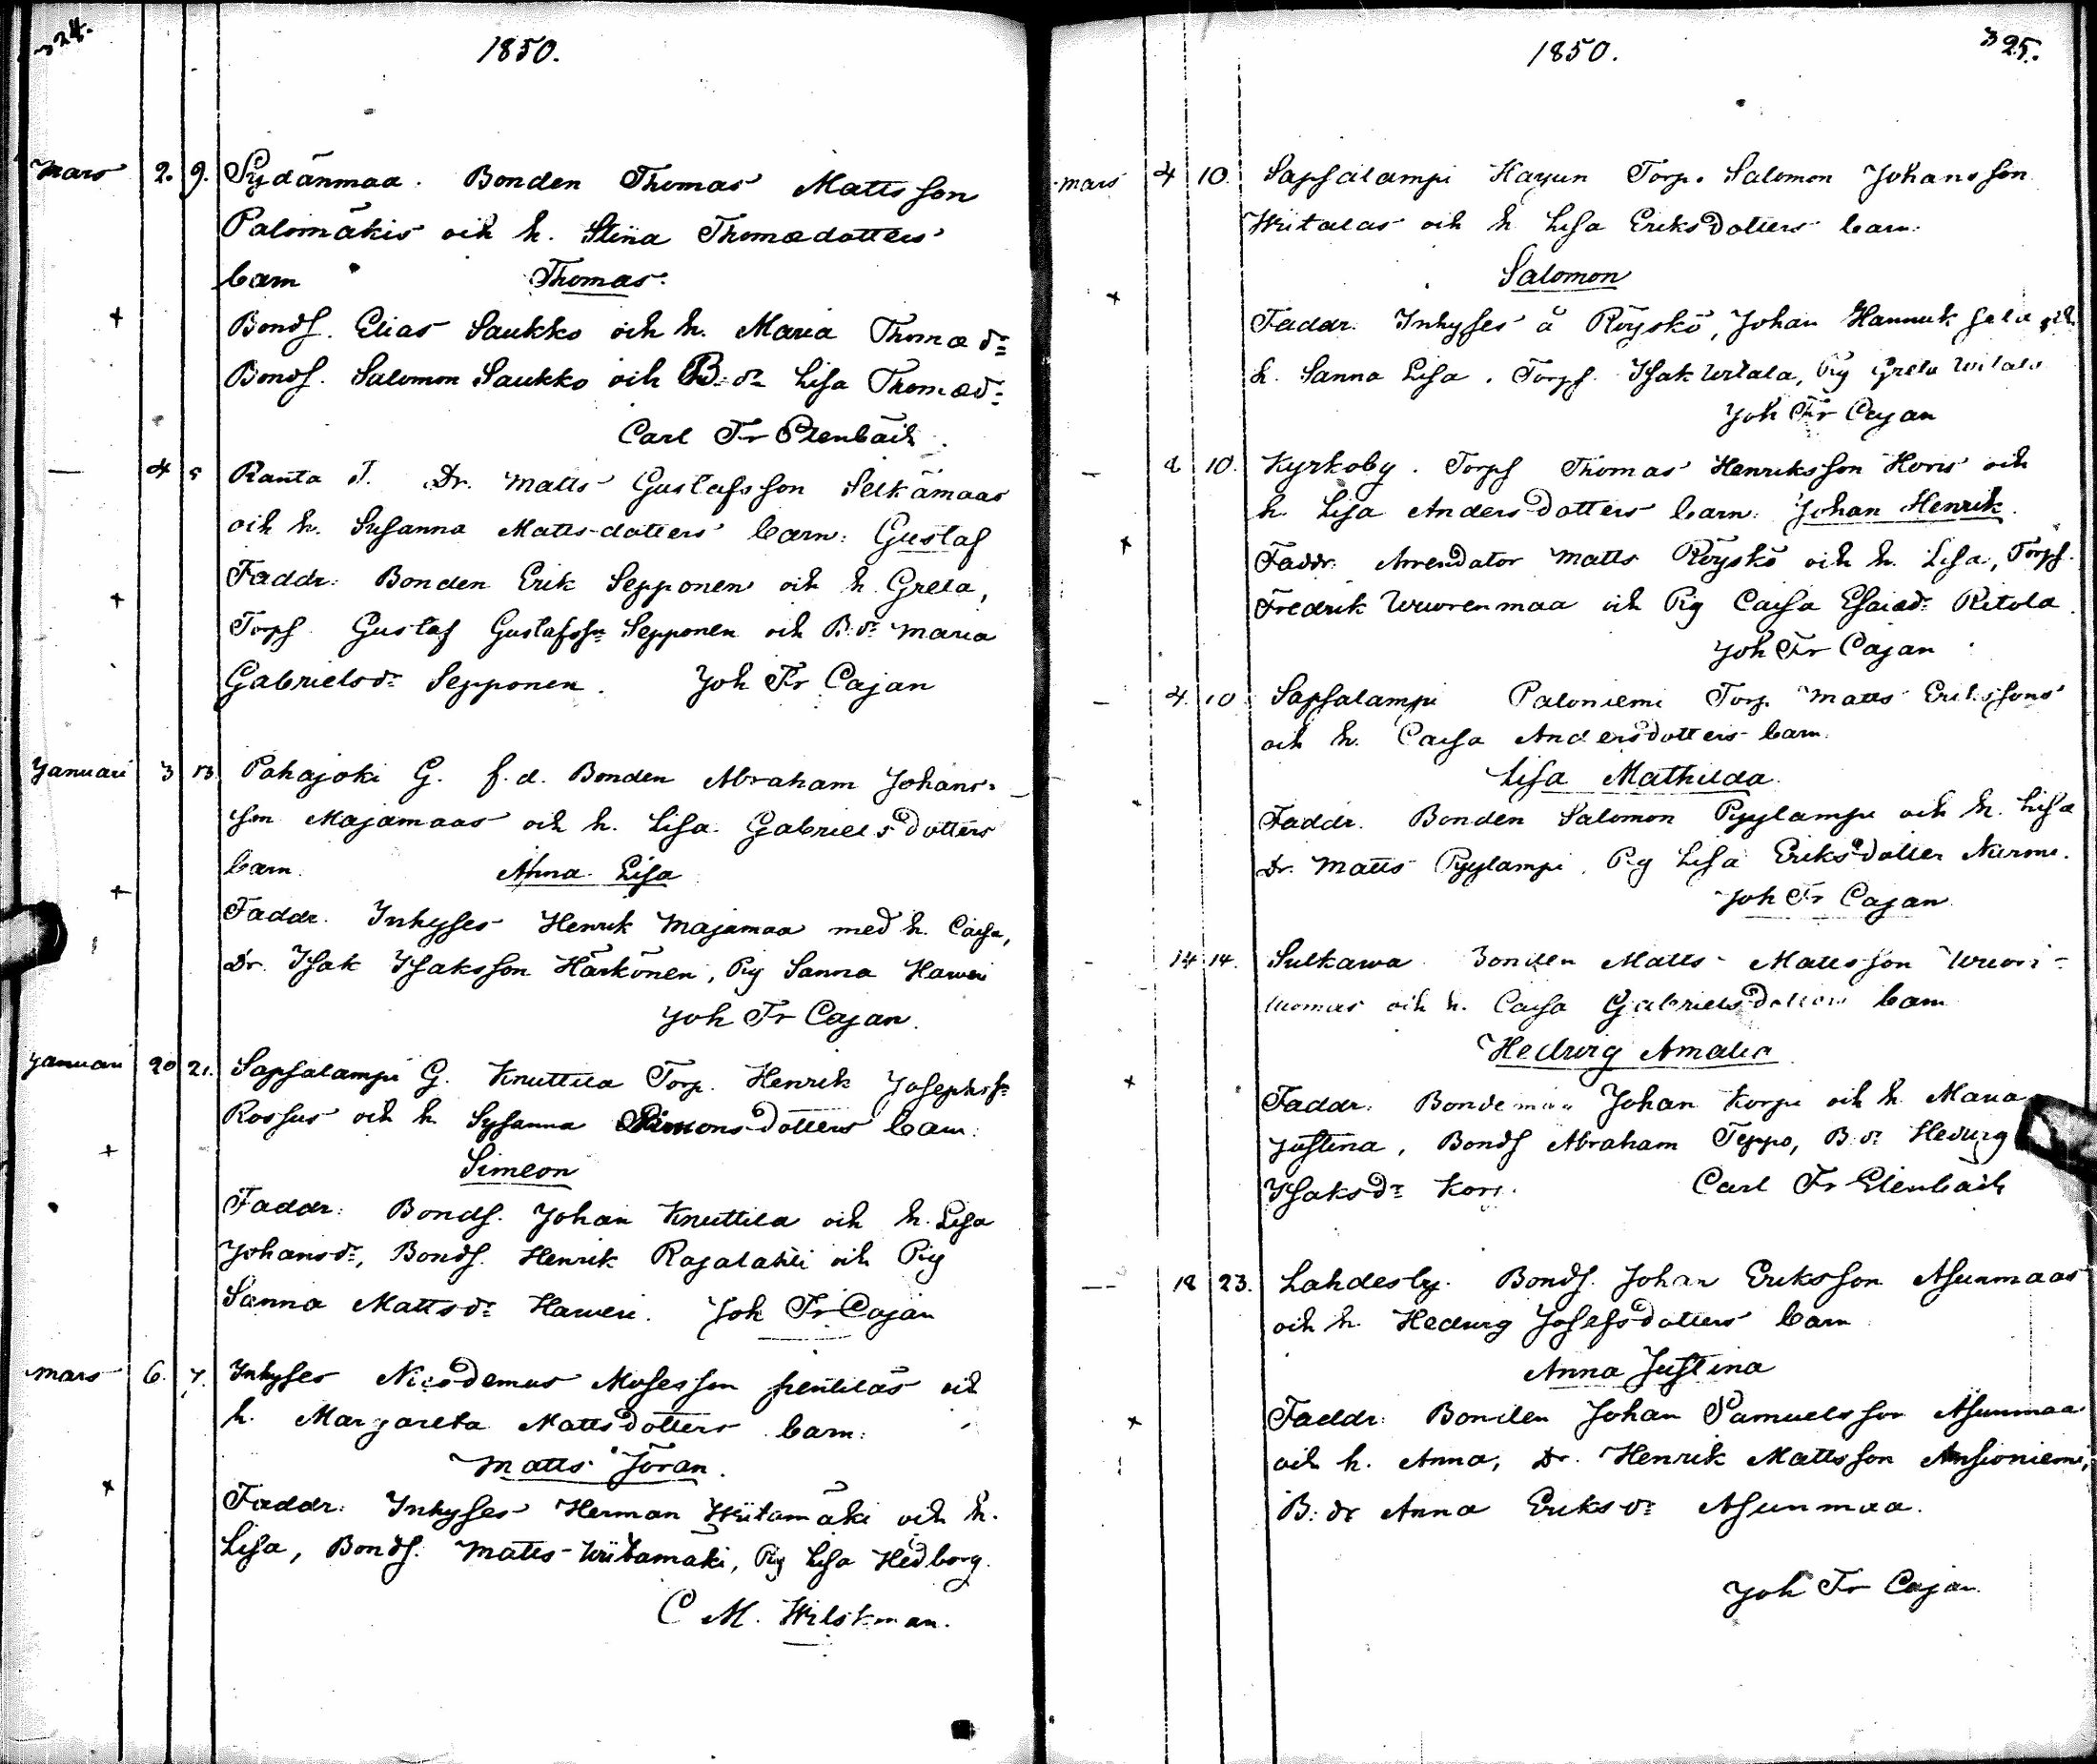 324.
1850.
Mars 2. 9. Sydänmaa. Bonden Thomas Mattsson
Palomäkis och h. Stina Thomædotters
barn Thomas.
+ Bonds. Elias Saukko och h. Maria Thomæ dr
Bonds. Salomon Saukko och B. dr Lisa Thomæd:
Carl Fr Elenbäch.
— 4 5 Ranta T. Dr. Matts Gustafsson Selkämaas
och h. Susanna Matts-dotters barn: Gustaf
Faddr: Bonden Erik Sepponen och h. Greta,
+ Torps. Gustaf Gustafssn Sepponen och B. dr Maria
Gabrielsdr Sepponen. Joh Fr Cajan
Januari 3 13. Pahajoki G. f.d. Bonden Abraham Johans-
son Majamaas och h. Lisa Gabrielsdotters
barn. Anna Lisa
+
Faddr. Inhyses Henrik Majamaa med h. Caisa,
Dr. Isak Isaksson Härkönen, Pig Sanna Haweri
Joh Fr Cajan.
Januari 20 21. Sapsalampi G. Knuttila Torp. Henrik Josephssn
Rossus och h. Sysanna Simonsdotters barn:
+ Simeon
Faddr: Bonds. Johan Knuttila och h. Lisa
Johansdr, Bonds. Henrik Rajalahti och Pig
Sanna Mattsdr Haweri. Joh Fr Cajan
Mars 6. 7. Inhyses Nicodemus Mosesson Penttiläs och
h. Margareta Mattsdotters barn:
Matts Jöran.
+
Faddr: Inhyses Herman Wiitamäki och h.
Lisa, Bonds. Matts Wiitamäki, Pig Lisa Hedborg.
C M. Wilskman.
325.
1850.
Mars 4 10. Sapsalampi Torp. Salomon Johansson
Wiitalas och h. Lisa Eriksdotters barn:
Salomon
+
Faddr. Inhyses å Röyskö, Johan Hannuksela och
h. Sanna Lisa. Torps. Isak Witala, Pig Greta Witala
Joh Fr Cajan
— 10. Kyrkoby. Torps Thomas Henriksson och
h. Lisa Andersdotters barn: Johan Henrik.
+
Faddr. Arrendator Matts Röyskö och h. Lisa, Torps.
Fredrik Wuorenmaa och Pig Caisa Esaiædr Ritola.
Joh Fr Cajan
— 4. 10 Sapsalampi Paloniemi Torp. Matts Erikssons
och h. Caisa Andersdotters barn.
Lisa Mathilda.
Faddr. Bonden Salomon Pyylampi och h. Lisa
Dr. Matts Pyylampi, Pig Lisa Eriksdotter Nurmi.
Joh Fr Cajan
- 14 14. Sulkawa Bonden Matts Mattsson Wuori-
och h. Caisa Gabrielsdotters barn
Hedwig Amalia
+
Faddr. Bondeman Johan Korpi och h. Maria
Justina, Bonds Abraham Teppo, B. dr Hedwig
Isaksdr Korpi. Carl Fr Elenbäch
— 18 23. Lahdesby. Bonds. Johan Eriksson Asunmaas
och h. Hedwig Josefsdotters barn
Anna Justina
+ Faddr: Bonden Johan Samuelsson Asunmaa
och h. Anna, Dr. Henrik Mattsson Ansioniemi,
B: dr Anna Eriksdr Asunmaa.
Joh Fr Cajan.